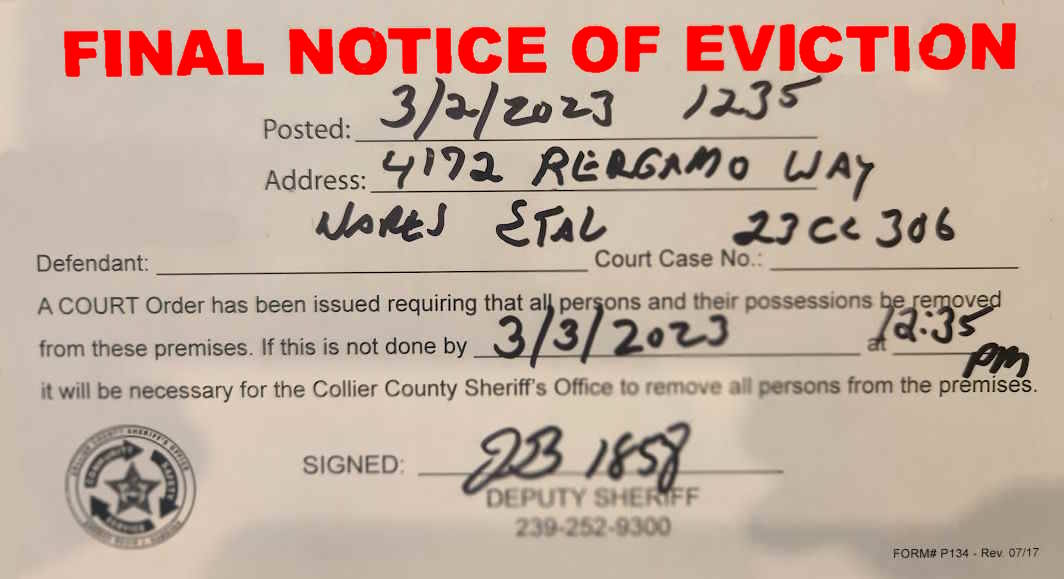 FINAL NOTICE OF EVICTION
Posted: 3/2/2023 1235
Address: 4172 RERGAMO WAY
Defendant: NARES ETAL Court Case No.: 23CC 306
A COURT Order has been issued requiring that all persons and their possessions be removed
from these premises. If this is not done by 3/3/2023 at 12:35 pm
it will be necessary for the Collier County Sheriff's Office to remove all persons from the premises.
COLLIER COUNTY SHERIFF'S OFFICE
COMMUNITY SAFETY SERVICE
SIGNED: 1858
DEPUTY SHERIFF
239-252-9300
FORM# P134 - Rev. 07/17